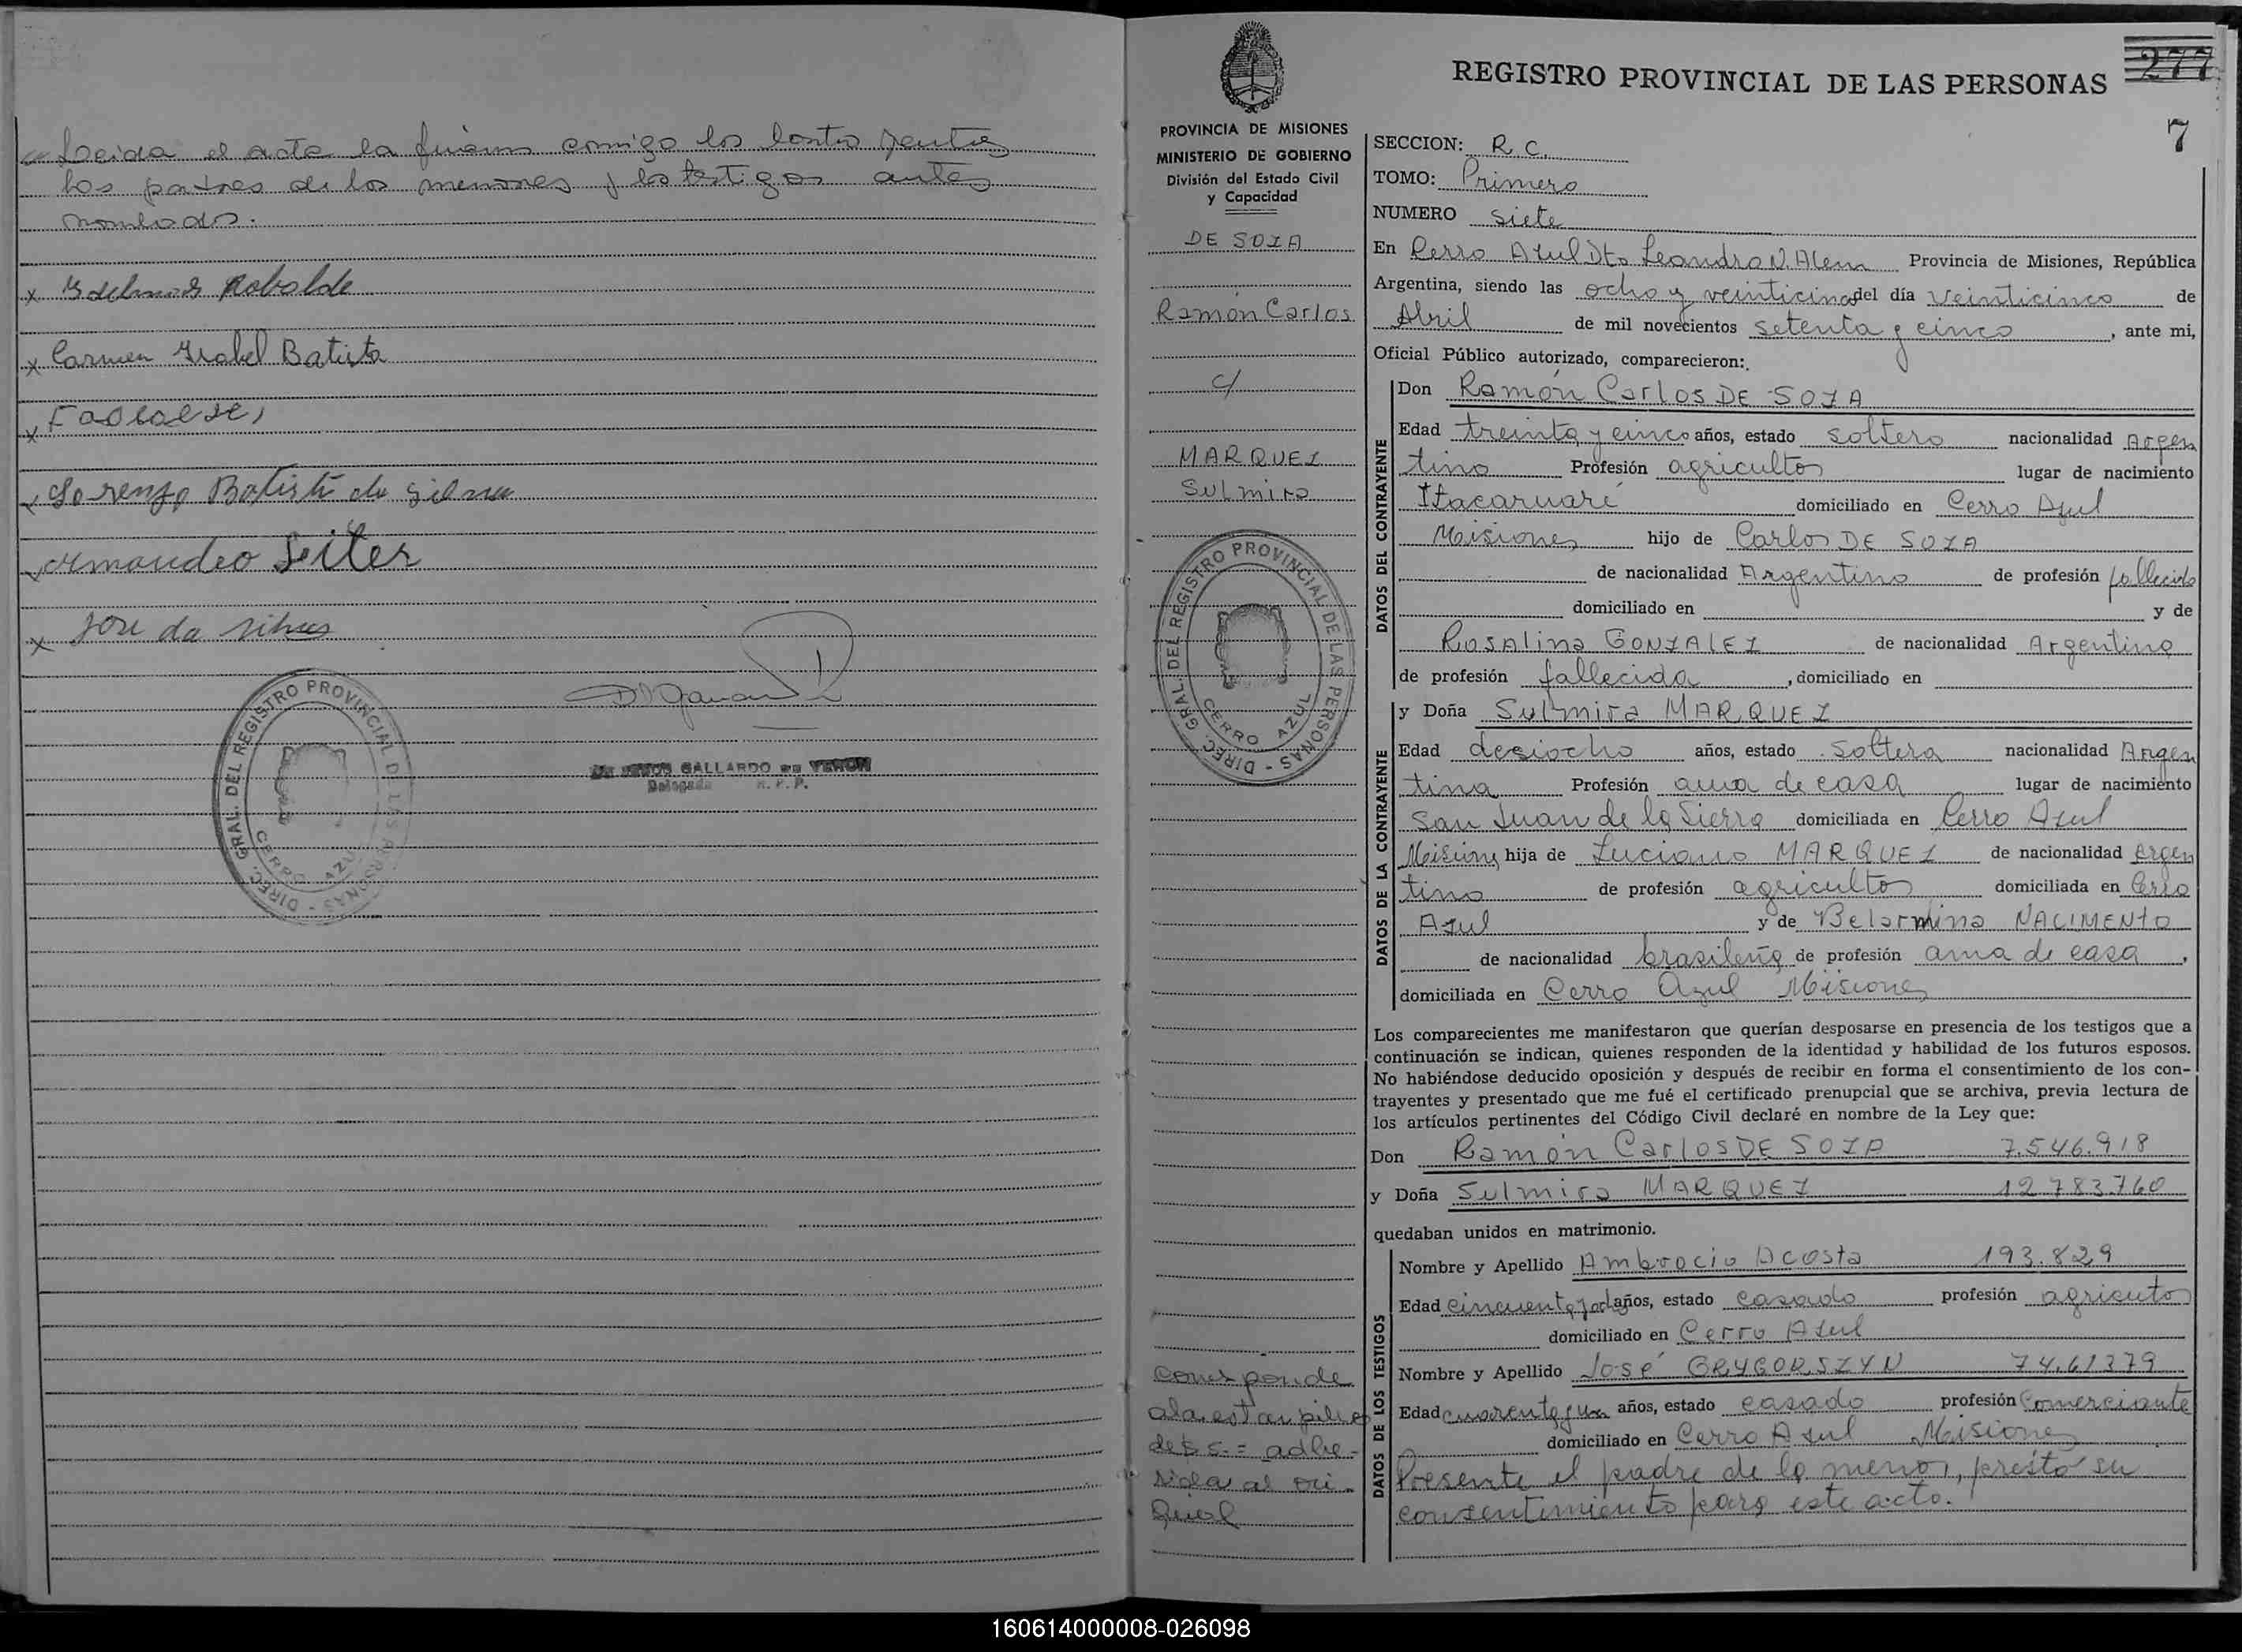 Leida el acta la firman comigo los contra yentes
los padres de los menores y los testigos antes
nombados.
x
x Carmen Isabel Batista
x
x Lorenzo Batista da Silva
x Armandeo Seiter
x José da Silva
DIREC. GRAL. DEL REGISTRO PROVINCIAL DE LAS PERSONAS
CERRO AZUL
GALLARDO DE VERON
Delegada R. P. P.
PROVINCIA DE MISIONES
MINISTERIO DE GOBIERNO
División del Estado Civil
y Capacidad
DE SOZA
Ramón Carlos
c/
MARQUEZ
Sulmira
DIREC. GRAL. DEL REGISTRO PROVINCIAL DE LAS PERSONAS
CERRO AZUL
Corresponde
a la estampilla
de $ 5.= adhe-
rida al ori-
ginal
REGISTRO PROVINCIAL DE LAS PERSONAS
277
7
SECCION: R. C.
TOMO: Primero
NUMERO siete
En Cerro Azul Dto Leandro N. Alem Provincia de Misiones, República
Argentina, siendo las ocho y veinticinco del día veinticinco de
Abril de mil novecientos setenta y cinco, ante mi,
Oficial Público autorizado, comparecieron:
DATOS DEL CONTRAYENTE
Don Ramón Carlos DE SOZA
Edad treinta y cinco años, estado soltero nacionalidad Argen
tino Profesión agricultor lugar de nacimiento
Itacaruaré domiciliado en Cerro Azul
Misiones hijo de Carlos DE SOZA
de nacionalidad Argentino de profesión fallecido
domiciliado en y de
Rosalina GONZALEZ de nacionalidad Argentina
de profesión fallecida, domiciliado en
DATOS DE LA CONTRAYENTE
y Doña Sulmira MARQUEZ
Edad desiocho años, estado soltera nacionalidad Argen
tina Profesión ama de casa lugar de nacimiento
San Juan de la Sierra domiciliada en Cerro Azul
Misiones hija de Luciano MARQUEZ de nacionalidad Argen
tino de profesión agricultor domiciliada en Cerro
Azul y de Belarmina NACIMENTO
de nacionalidad brasileña de profesión ama de casa,
domiciliada en Cerro Azul Misiones
Los comparecientes me manifestaron que querían desposarse en presencia de los testigos que a
continuación se indican, quienes responden de la identidad y habilidad de los futuros esposos.
No habiéndose deducido oposición y después de recibir en forma el consentimiento de los con-
trayentes y presentado que me fué el certificado prenupcial que se archiva, previa lectura de
los artículos pertinentes del Código Civil declaré en nombre de la Ley que:
Don Ramón Carlos DE SOZA 7.546.918
y Doña Sulmira MARQUEZ 12.783.760
quedaban unidos en matrimonio.
DATOS DE LOS TESTIGOS
Nombre y Apellido Ambrocio Acosta 193.829
Edad años, estado casado profesión agricutor
domiciliado en Cerro Azul
Nombre y Apellido José GRYGORSZYN 74.61379
Edad cuarenta y un años, estado casado profesión Comerciante
domiciliado en Cerro Azul Misiones
Presente el padre de la menor, prestó su
consentimiento para este acto.
160614000008-026098